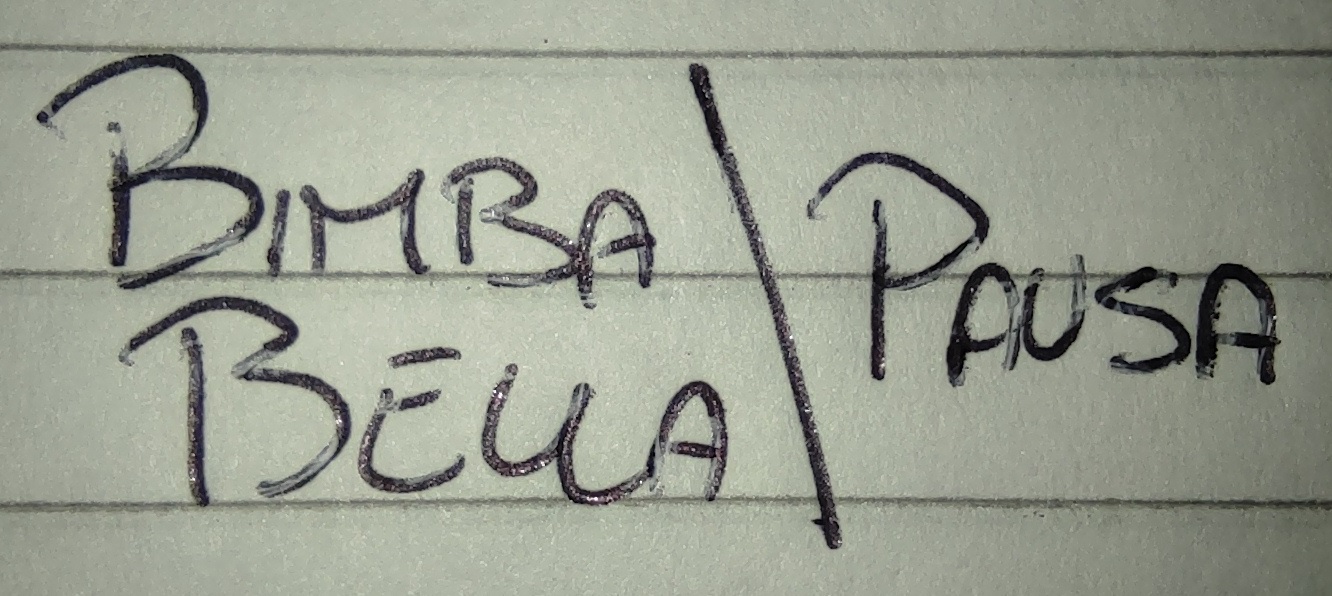 BIMBA
BELLA \ PAUSA